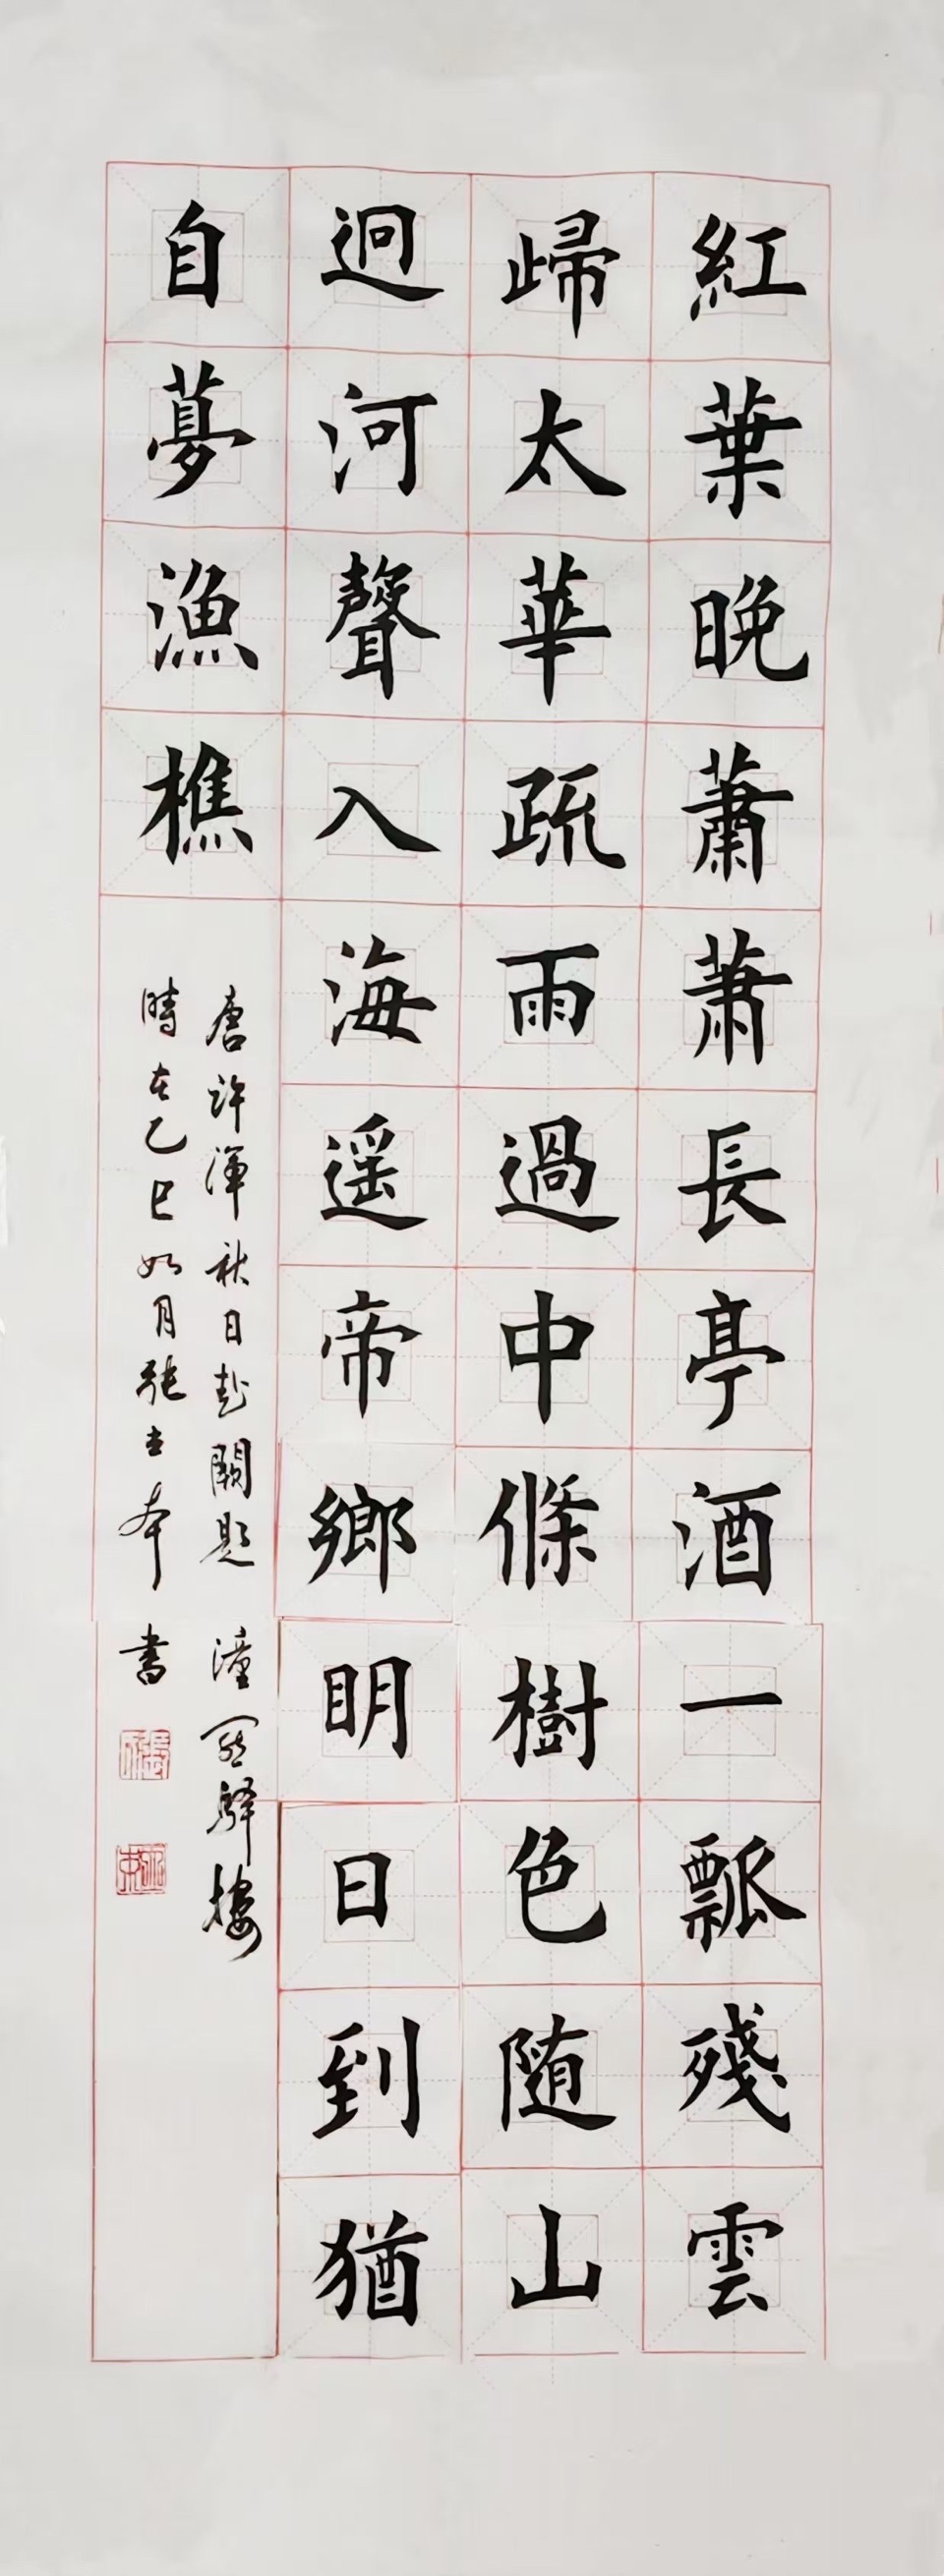 紅葉晚蕭蕭長亭酒一瓢殘雲
歸太華疏雨過中條樹色隨山
迥河聲入海遥帝鄉明日到猶
自夢漁樵
唐許渾秋日赴闕題潼關驛樓
時在乙巳如月張
書